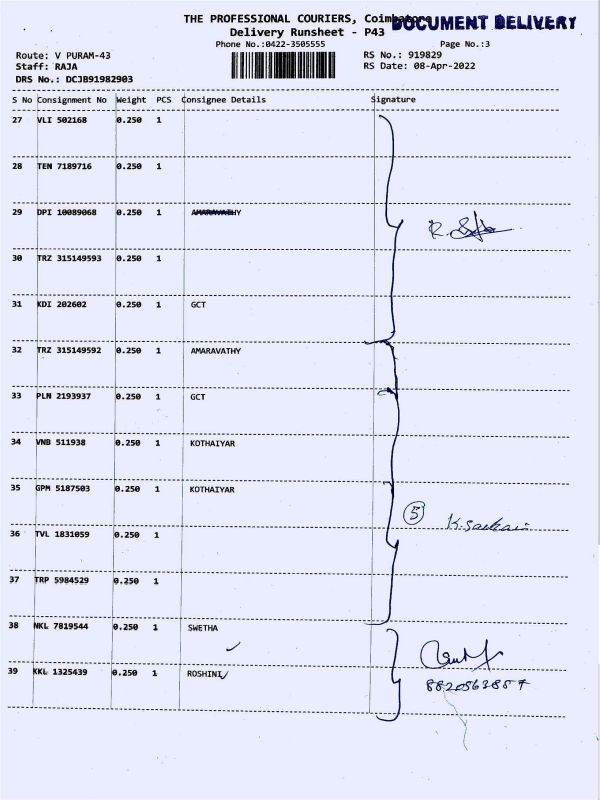 THE PROFESSIONAL COURIERS, Coimbatore
DOCUMENT DELIVERY
Delivery Runsheet - P43
Phone No.:0422-3505555 Page No.:3
Route: V PURAM-43 RS No.: 919829
Staff: RAJA RS Date: 08-Apr-2022
DRS No.: DCJB91982903
S No Consignment No Weight PCS Consignee Details Signature
27 VLI 502168 0.250 1
28 TEN 7189716 0.250 1
29 DPI 10089068 0.250 1 AMARAVATHY
30 TRZ 315149593 0.250 1
31 KDI 202602 0.250 1 GCT
32 TRZ 315149592 0.250 1 AMARAVATHY
33 PLN 2193937 0.250 1 GCT
34 VNB 511938 0.250 1 KOTHAIYAR
35 GPM 5187503 0.250 1 KOTHAIYAR
5
36 TVL 1831059 0.250 1
37 TRP 5984529 0.250 1
38 NKL 7819544 0.250 1 SWETHA
39 KKL 1325439 0.250 1 ROSHINI